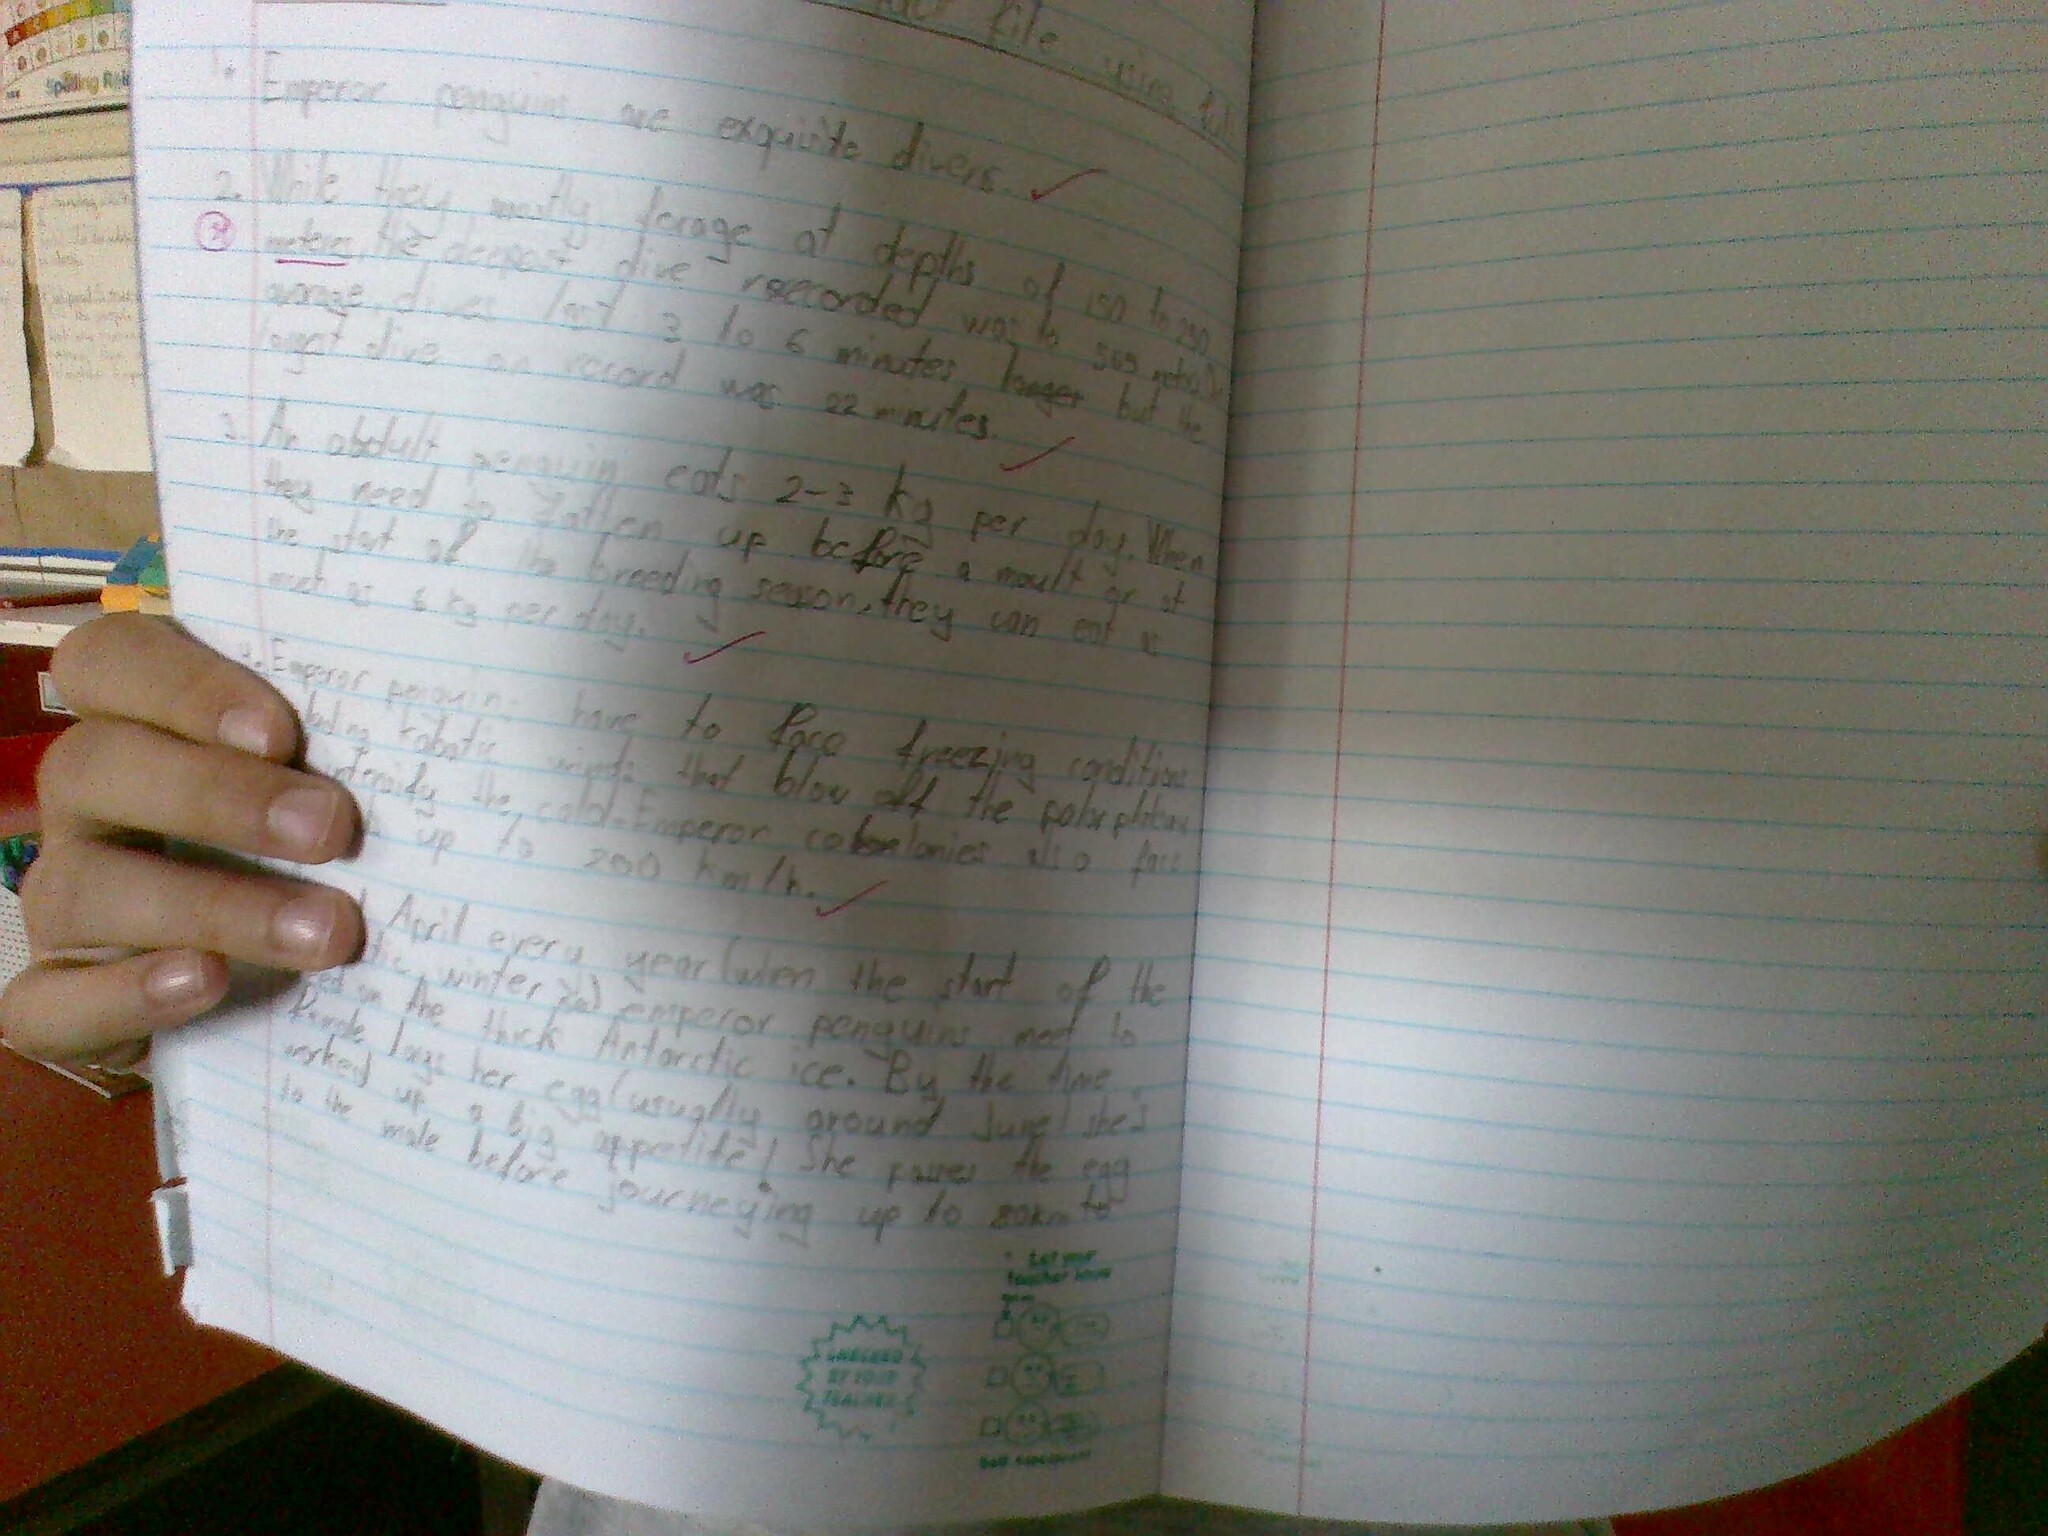 file using full
1. Emperor penguins are exquisite divers.
2. While they mostly forage at depths of 150 to 250
meters, the deepest dive recorded was to 565 metres. On
average, dives last 3 to 6 minutes longer but the
longest dive on record was 22 minutes.
3. An abdult penguin eats 2-3 kg per day. When
they need to fatten up before a moult or at
the start of the breeding season, they can eat as
much as 6 kg per day.
4. Emperor penguins have to face freezing conditions
winds that blow off the polar plateau
the cold. Emperor colonies also face
up to 200 km/h.
April every year (when the start of the
winter emperor penguins meet to
on the thick Antarctic ice. By the time
female lays her egg (usually around June) she's
worked up a big appetite! She passes the egg
to the male before journeying up to 80km to
Let your
teacher know
CHECKED
BY YOUR
TEACHER
Self assessment
Spelling